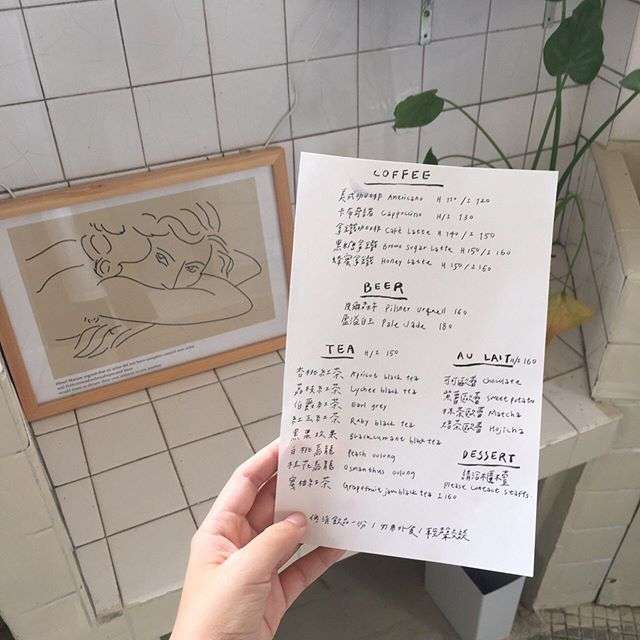 COFFEE
美式咖啡 Americano H 110 / I 120
卡布奇諾 Cappuccino H/I 130
拿鐵咖啡 Café Latte H 140 / I 150
黑糖拿鐵 Brown Sugar Latte H 150 / I 160
蜂蜜拿鐵 Honey Latte H 150 / I 160
BEER
Pilsner Urquell 160
Pale Jade 180
TEA H/I 150
杏桃紅茶 Apricot black tea
荔枝紅茶 Lychee black tea
伯爵紅茶 Earl grey
紅玉紅茶 Ruby black tea
黑果玫果 Blackcurrant black tea
白桃烏龍 Peach oolong
桂花烏龍 Osmanthus oolong
蜜柚紅茶 Grapefruit jam black tea I 160
AU LAIT H/I 160
可可歐蕾 Chocolate
紫薯歐蕾 Sweet potato
抹茶歐蕾 Matcha
焙茶歐蕾 Hojicha
DESSERT
請洽櫃檯
Please contact staffs.
低消飲品一份 / 勿帶外食 / 輕聲交談